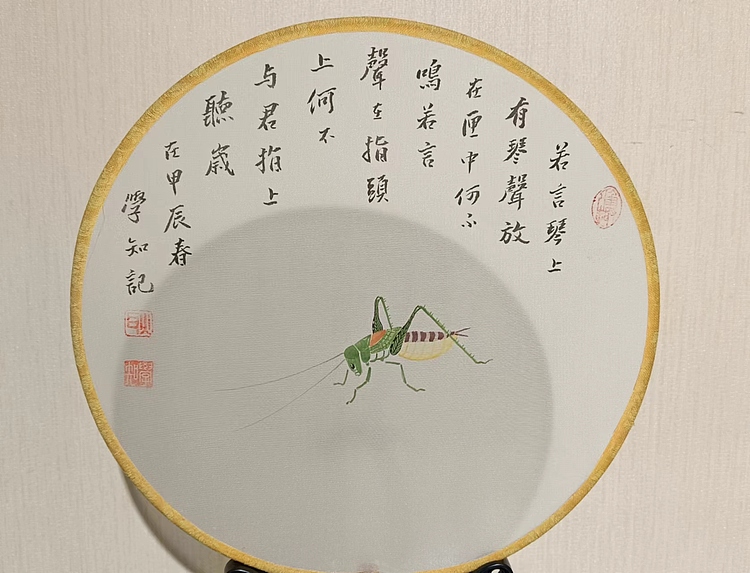 若言琴上
有琴聲放
在匣中何不
鳴若言
聲在指頭
上何不
与君指上
聽歲
在甲辰春
學知記